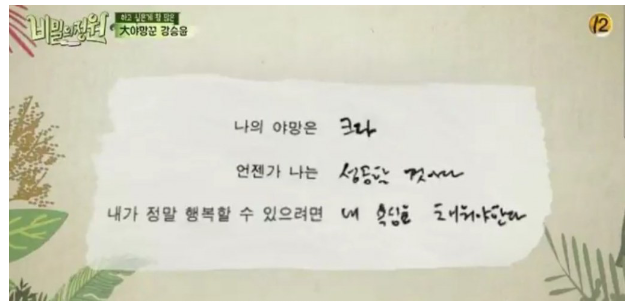 비밀의정원
하고 싶은게 참 많은
大야망꾼 강승윤
12
나의 야망은 크다
언젠가 나는 성공할 것이다
내가 정말 행복할 수 있으려면 내 욕심을 채워야한다